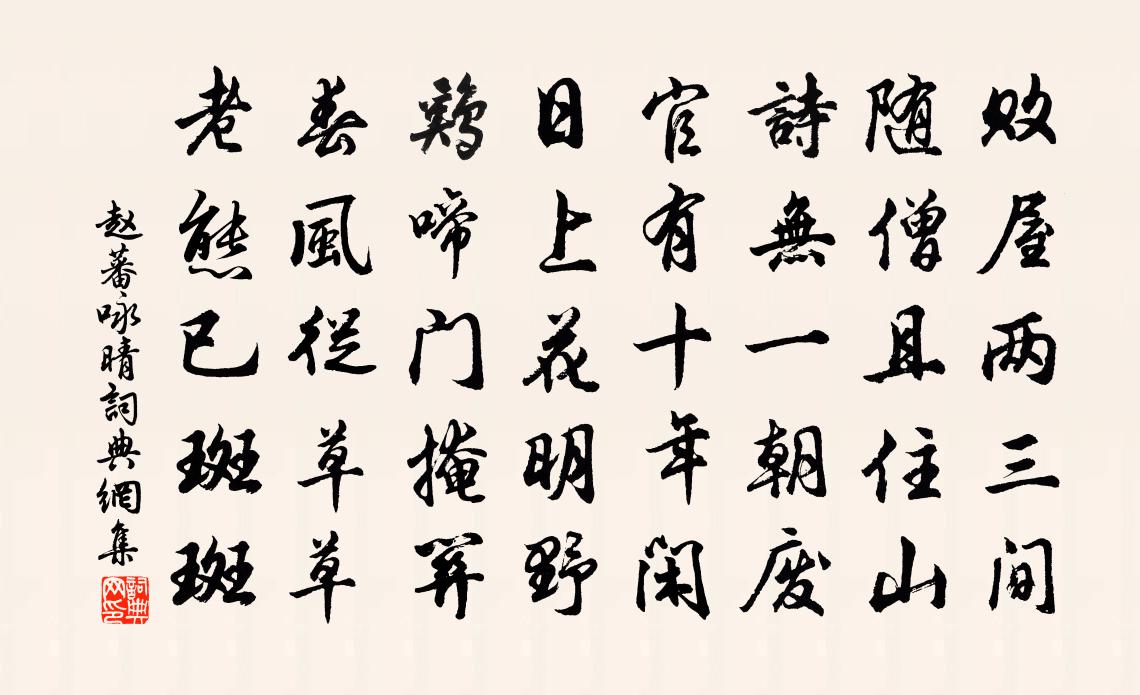 败屋两三间
随僧且住山
詩無一朝废
官有十年闲
日上花明野
鷄啼门掩關
春風從草草
老態已斑斑
赵蕃咏晴詞典網集
詞典网印